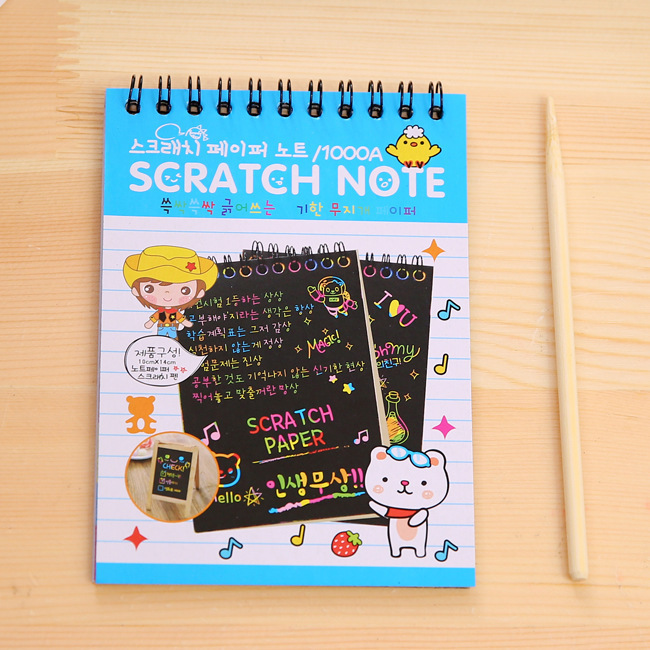 스크래치 페이퍼 노트 /1000A
SCRATCH NOTE
쓱싹쓱싹 긁어쓰는 기한 무지개 페이퍼
시험 1등하는 상상
공부해야지라는 생각은 항상
학습계획표는 그저 감상
실천하지 않는게 정상
문제는 진상
공부한 것도 기억나지 않는 신기한 현상
찍어놓고 맞출꺼란 망상
Magic!
I U
Oh my
친구
제품구성!
10cmX14cm
노트페이퍼
스크래치 펜
SCRATCH
PAPER
CHECK!
Hello
인생무상!!